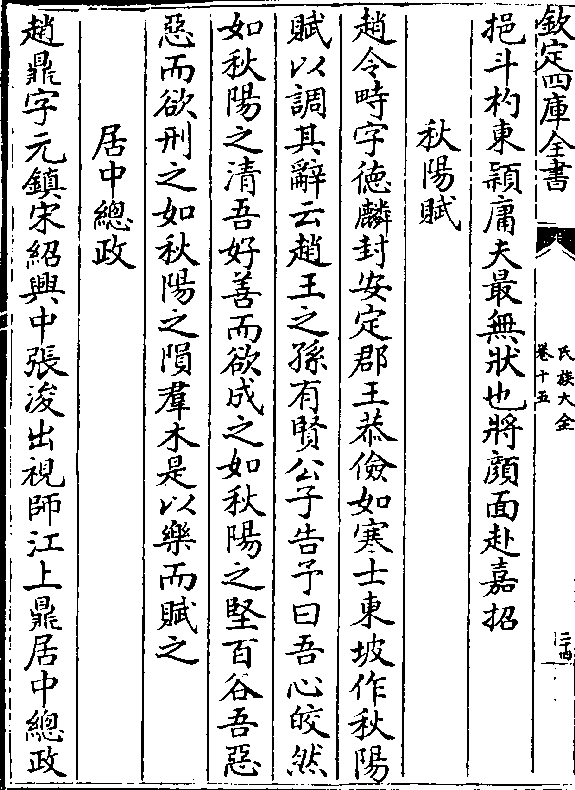 欽定四庫全書
氏族大全
卷十五
二十四
挹斗杓東穎庸夫最無狀也將顔面赴嘉招
秋陽賦
趙令畤字徳麟封安定郡王恭儉如寒士東坡作秋陽
賦以調其辭云趙王之孫有賢公子告予曰吾心皎然
如秋陽之清吾好善而欲成之如秋陽之堅百谷吾惡
惡而欲刑之如秋陽之隕羣木是以樂而賦之
居中總政
趙鼎字元鎮宋紹興中張浚出視師江上鼎居中總政